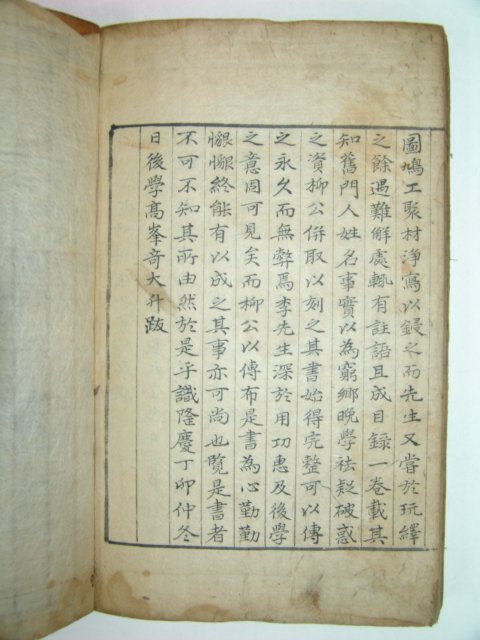 圖鳩工聚材淨寫以鋟之而先生又嘗於玩繹
之餘遇難解處輒有註語且成目録一卷載其
知舊門人姓名事實以為窮鄉晚學祛疑破惑
之資柳公併取以刻之其書始得完整可以傳
之永久而無弊焉李先生深於用功惠及後學
之意固可見矣而柳公以傳布是書為心勤勤
懇懇終能有以成之其事亦可尚也覽是書者
不可不知其所由然於是乎識隆慶丁卯仲冬
日後學高峯奇大升跋